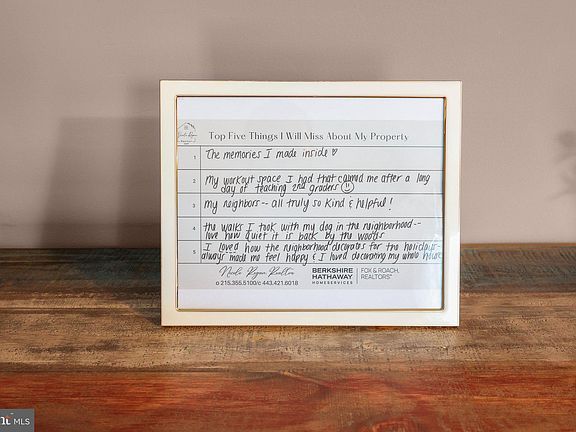 Top Five Things I Will Miss About My Property
1 The memories I made inside ♡
2 My workout space I had that calmed me after a long
day of teaching 2nd graders ☺
3 My neighbors-- all truly so kind & helpful!
4 the walks I took with my dog in the neighborhood--
love how quiet it is back by the woods
5 I loved how the neighborhood decorates for the holidays-
always made me feel happy & I loved decorating my whole house
o 215.355.5100/c 443.421.6018
BERKSHIRE
HATHAWAY
HOMESERVICES
FOX & ROACH,
REALTORS®
MLS